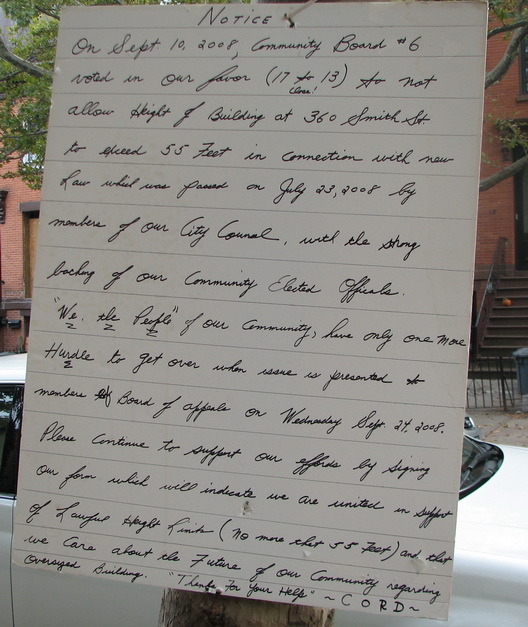 NOTICE
On Sept 10, 2008, Community Board #6
voted in our favor (17 to 13) to not
close!
allow Height of Building at 360 Smith St.
to exceed 55 Feet in connection with new
Law which was passed on July 23, 2008 by
members of our City Counsel, with the strong
backing of our Community Elected Officials.
"We, the People" of our Community, have only one more
Hurdle to get over when issue is presented to
members of Board of appeals on Wednesday Sept. 24, 2008.
Please Continue to support our efforts by signing
our form which will indicate we are united in support
of Lawful Height Limits (No more that 55 Feet) and that
we Care about the Future of our Community regarding
Oversized Building. "Thanks For Your Help" ~ C O R D ~